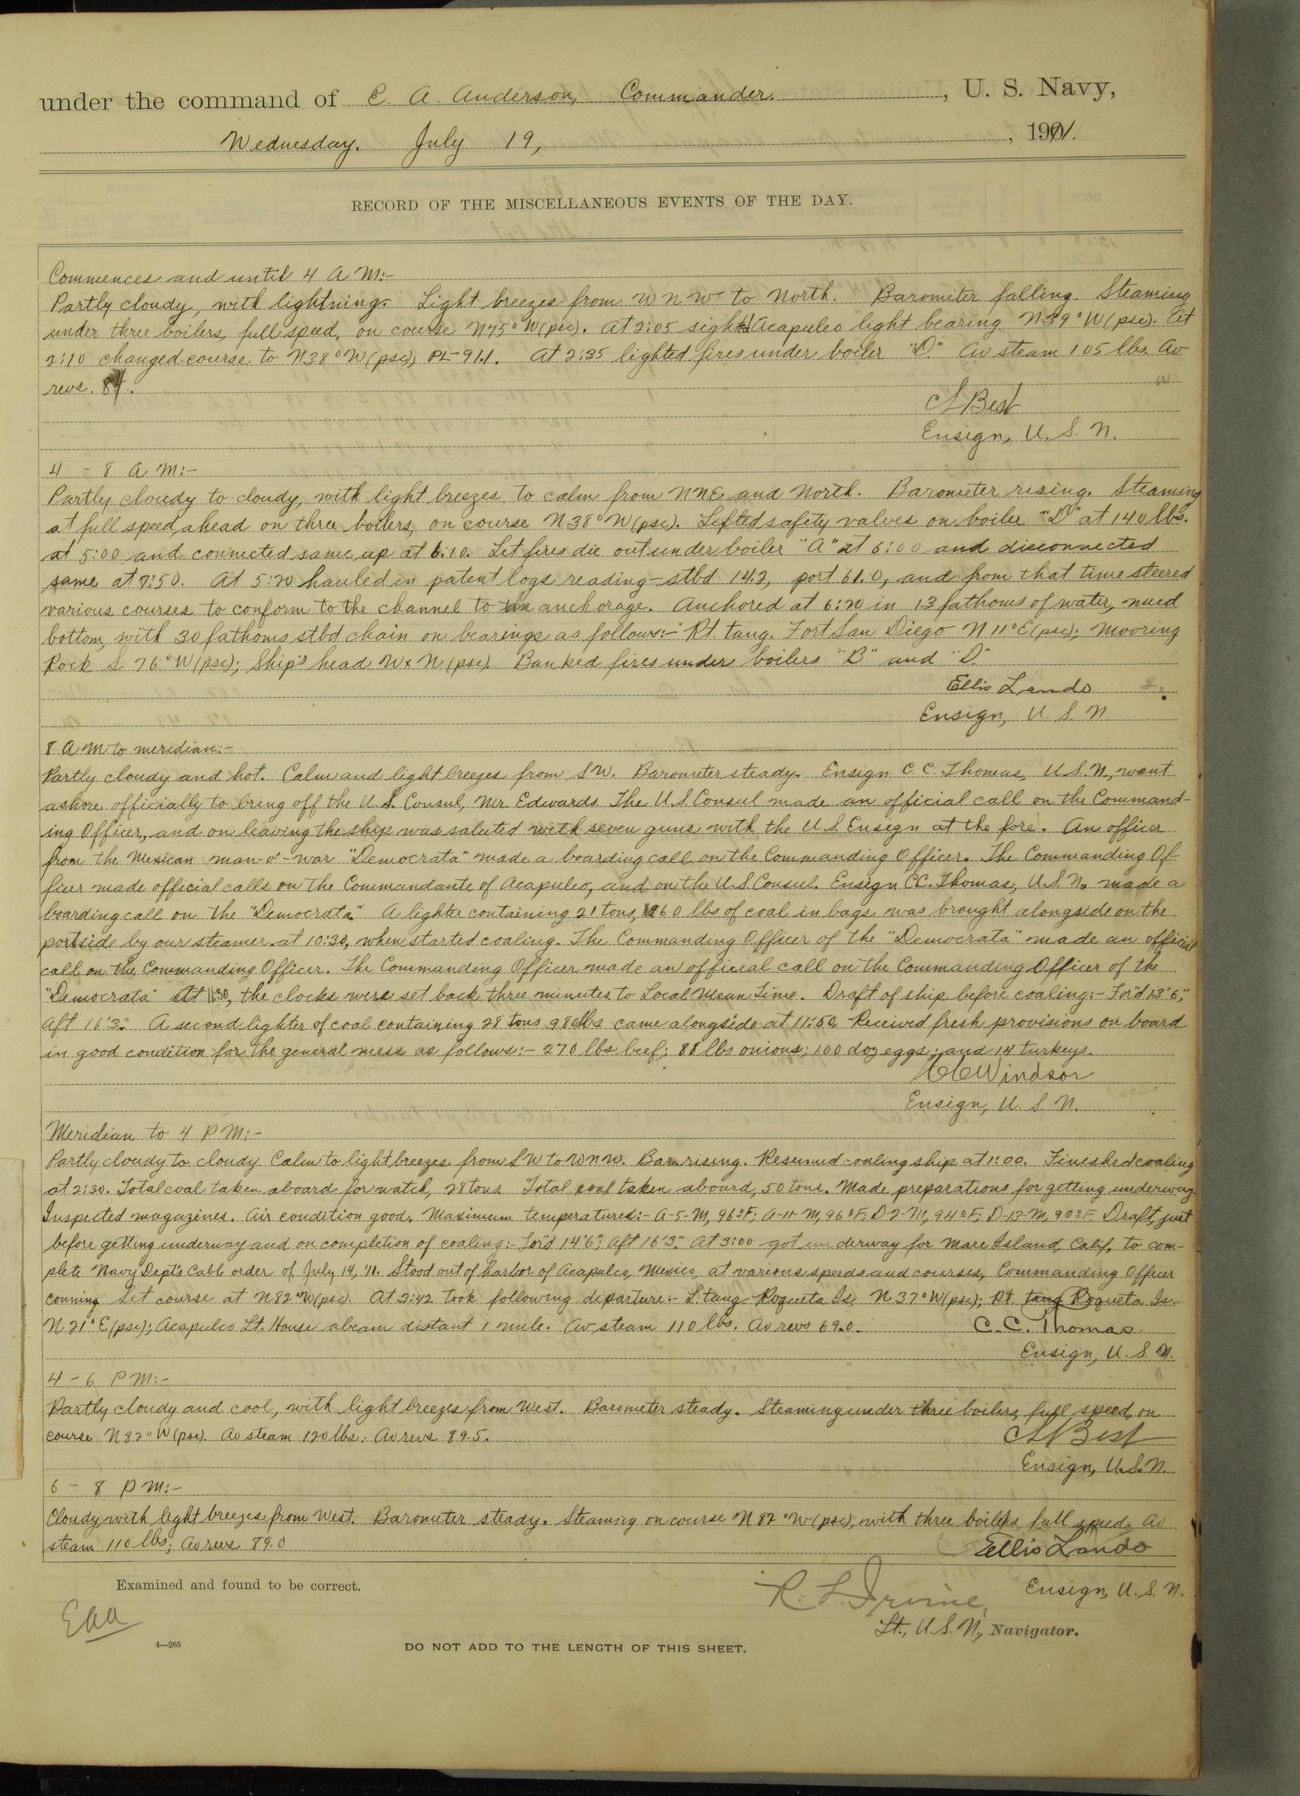 under the command of E. A. Anderson, Commander, U. S. Navy,
Wednesday. July 19, , 1911.
RECORD OF THE MISCELLANEOUS EVENTS OF THE DAY.
Commences and until 4 A M:-
Partly cloudy, with lightning. Light breezes from W N W to North. Barometer falling. Steaming
under three boilers, full speed, on course N75°W(psc). At 2:05 sighted Acapulco light bearing N59°W(psc). At
2:10 changed course to N38°W(psc), PL-91.1. At 2:35 lighted fires under boiler "D." Av steam 105 lbs. Av
revs. 84.
C L Best
Ensign, U. S. N.
4 - 8 A M:-
Partly cloudy to cloudy, with light breezes to calm from NNE and North. Barometer rising. Steaming
at full speed, ahead on three boilers, on course N38°W(psc). Lifted safety valves on boiler "D" at 140 lbs.
at 5:00 and connected same up at 6:10. Let fires die out under boiler "A" at 6:00 and disconnected
same at 7:50. At 5:20 hauled in patent logs reading - stbd 14.2, port 61.0, and from that time steered
various courses to conform to the channel to the anchorage. Anchored at 6:20 in 13 fathoms of water, mud
bottom, with 30 fathoms stbd chain on bearings as follows:- Rt. tang. Fort San Diego N 11°E(psc); Mooring
Rock S 76°W(psc); Ship's head WxN(psc) Banked fires under boilers "B" and "D."
Ellis Lando
Ensign, U. S. N
8 A M to meridian:-
Partly cloudy and hot. Calm and light breezes from SW. Barometer steady. Ensign C. C. Thomas, U. S. N, went
ashore officially to bring off the U. S. Consul, Mr. Edwards. The U. S. Consul made an official call on the Command-
ing Officer, and on leaving the ship was saluted with seven guns with the U. S. Ensign at the fore. An officer
from the Mexican man-o'-war "Democrata" made a boarding call on the Commanding Officer. The Commanding Of-
ficer made official calls on the Commandante of Acapulco, and on the U. S. Consul. Ensign C C. Thomas, U. S. N. made a
boarding call on the "Democrata." A lighter containing 21 tons, 1260 lbs of coal in bags was brought alongside on the
portside by our steamer at 10:30, when started coaling. The Commanding Officer of the "Democrata" made an official
call on the Commanding Officer. The Commanding Officer made an official call on the Commanding Officer of the
"Democrata" At 11:30, the clocks were set back three minutes to Local Mean Time. Draft of ship before coaling:- For'd 13' 6",
Aft 16' 3". A second lighter of coal containing 28 tons 980 lbs came alongside at 11:50. Received fresh provisions on board
in good condition for the general mess as follows:- 270 lbs beef; 88 lbs onions; 100 doz eggs; and 14 turkeys.
C C Windsor
Ensign, U. S. N.
Meridian to 4 P M:-
Partly cloudy to cloudy. Calm to light breezes from SW to WNW. Bar. rising. Resumed coaling ship at 1:00. Finished coaling
at 2:30. Total coal taken aboard for watch, 28 tons. Total coal taken aboard, 50 tons. Made preparations for getting underway.
Inspected magazines. Air condition good. Maximum temperatures:- A-5-M, 96°F; A-11-M, 96°F; D-2-M, 94°F; D-13-M, 90°F. Draft, just
before getting underway and on completion of coaling:- For'd 14' 6"; Aft 16' 3". At 3:00 got underway for Mare Island, Calif, to com-
plete Navy Dept's Cable order of July 14, '11. Stood out of harbor of Acapulco, Mexico, at various speeds and courses, Commanding Officer
conning Set course at N82°W(psc). At 3:42 took following departure:- L. tang. Roqueta Is. N 37°W(psc); Rt. tang Roqueta Is.
N 21°E(psc); Acapulco Lt. House abeam distant 1 mile. Av steam 110 lbs. Av revs 69.0.
C. C. Thomas.
Ensign, U. S. N.
4 - 6 P M:-
Partly cloudy and cool, with light breezes from West. Barometer steady. Steaming under three boilers, full speed, on
course N82°W(psc). Av steam 120 lbs. Av revs 89.5.
C L Best
Ensign, U. S. N.
6 - 8 P M:-
Cloudy, with light breezes from West. Barometer steady. Steaming on course N 82°W(psc), with three boilers full speed. Av
steam 110 lbs; Av revs 89.0
Ellis Lando
Ensign, U. S. N.
Examined and found to be correct.
R. L. Irvine,
Lt., U. S. N., Navigator.
Eaa
4—265
DO NOT ADD TO THE LENGTH OF THIS SHEET.